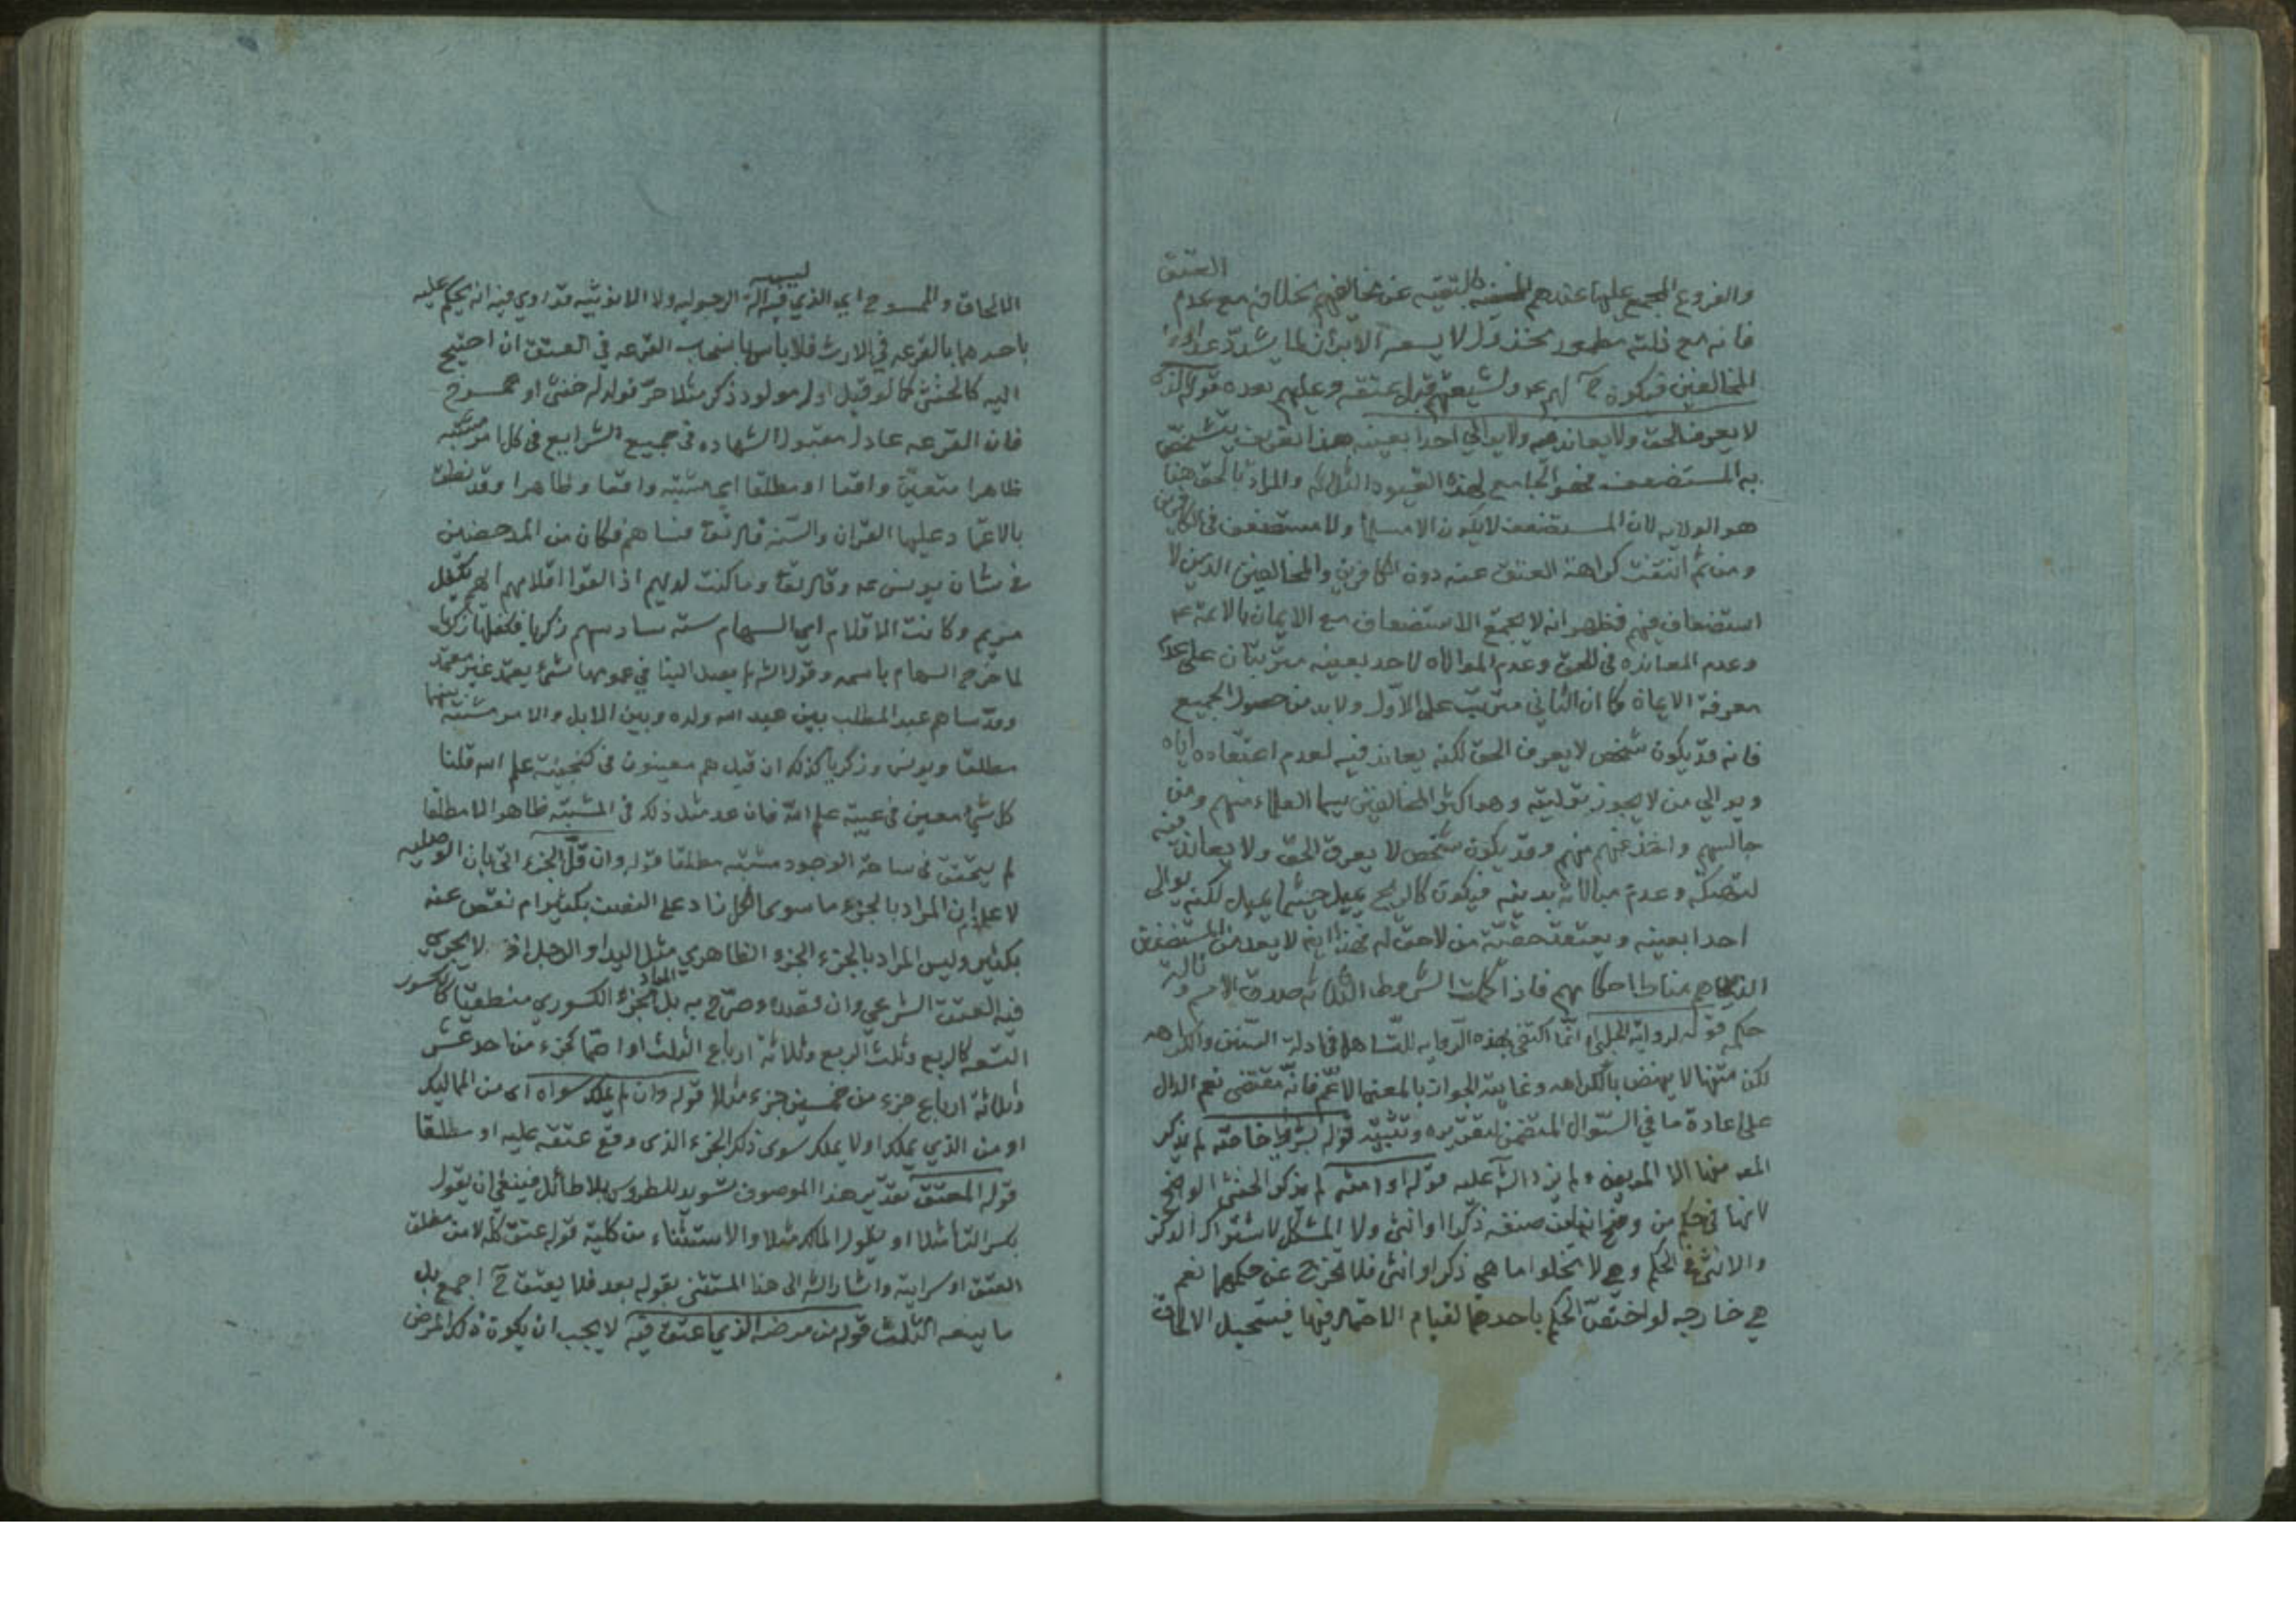 العتق
والفروع المجمع عليها عندهم كالتقيه عن مخالفيهم بخلافه مع عدم
فانه مع ذلته مطمور مخذول لا يسعه الا
المخالفين فيكون ح لهم ولشيعتهم قبل عتقه وعليهم بعده قوله الذي
لا يعرف الحق ولا يعاند فيه ولا يوالي احدا بعينه هذا تعريف يتشخص
به المستضعف فهو الجامع لهذه القيود الثلاثه والمراد بالحق هنا
هو الولايه لان المستضعف لا يكون الا مسلما ولا مستضعف في الكافرين
ومن ثم انتفت كراهة العتق عنه دون الكافرين والمخالفين الذين لا
استضعاف فيهم فظهر انه لا يجمع الاستضعاف مع الايمان بالائمة ع
وعدم المعانده في الحق وعدم الموالاه لاحد بعينه مترتبان على عدم
معرفة الامام كما ان الثاني مترتب على الاول ولا بد من حصول الجميع
فانه قد يكون شخص لا يعرف الحق لكنه يعاند فيه لعدم اعتقاده اياه
ويوالي من لا يجوز توليته وهو اكثر المخالفين سيما العلماء منهم ومن
جالسهم واخذ عنهم منهم وقد يكون شخص لا يعرف الحق ولا يعاند فيه
لتهتكه وعدم مبالاته بدينه فيكون كالريح يميل حيثما يميل لكنه يوالي
احدا بعينه ويعتقد حقيته من لا حق له فهذا ايضا لا يعد من المستضعفين
الذي هم مناط احكامهم فاذا كملت الشروط الثلاثه صدق الاسم وناله
حكمه قوله لرواية الحلبي انما اكتفى بهذه الروايه للتساهل في ادلة السنن والكراهه
لكن متنها لا ينهض بالكراهه وغايته الجواز بالمعنى الاعم فانه مقتضى نعم الدال
على اعادة ما في السؤال المتضمن لتقريره وتثبيته قوله بشروط خاصه لم يذكر
المصه منها الا المريض ولم يزد الشه عليه قوله او امته لم يذكر الخنثى الواضح
لانها في حكم من وضح انه من صنفه ذكرا او انثى ولا المشكل لاشتراك الذكر
والانثى في الحكم وهي لا تخلوا اما هي ذكر او انثى فلا تخرج عن حكمهما نعم
هي خارجه لو اختص الحكم باحدهما لقيام الاحتمال فيها فيستحيل الالحاق
الالحاق والممسوح اي الذي ليس فيه آلة الرجوليه ولا الانوثيه قد روي فيه انه يحكم عليه
باحدهما بالقرعه في الارث فلا باس بانسحاب القرعه في العتق ان احتيج
اليه كالخنثى كما لو قيل اول مولود ذكر مثلا حر فولد له خنثى او ممسوح
فان القرعه عادل مقبول الشهاده في جميع الشرايع في كل امر مشتبه
ظاهرا متعين واقعا او مطلقا اي مشتبه واقعا وظاهرا وقد نطق
بالاعتماد عليها القران والسنه قال تعا فساهم فكان من المدحضين
في شان يونس ع وقال تعا وما كنت لديهم اذ القوا اقلامهم ايهم يكفل
مريم وكانت الاقلام اي السهام سته سادسهم زكريا فكفلها زكريا
لما خرج السهام باسمه وقول الشه لم يصل الينا في عمومها شيء يعتمد غير معتمد
وقد ساهم عبد المطلب بين عبد الله ولده وبين الابل والامر مشتبه بينها
مطلقا ويونس وزكريا كذلك ان قيل هم معينون في كنجينة علم الله قلنا
كل شيء معين في عيبة علم الله فان عد مثل ذلك في المشتبه ظاهرا لا مطلقا
لم يتحقق في ساحة الوجود مشتبه مطلقا قوله وان قل الجزء اتى بان الوصليه
لا علام ان المراد بالجزء ما سوى الكل زاد على النصف بكثير ام نقص عنه
بكثير وليس المراد بالجزء الجزء الظاهري مثل اليد او الرجل اذ لا يجري
فيه العتق الشرعي وان قصده وصرح به بل المراد الجزء الكسوري منطقيا كالكسور
التسعه كالربع وثلث الربع وثلاثة ارباع الثلث او اصما كجزء من احد عشر
وثلاثة ارباع جزء من خمسين جزء مثلا قوله وان لم يملك سواه اي من المماليك
او من الذي يملك او لا يملك سوى ذلك الجزء الذي وقع عتقه عليه او مطلقا
قوله المعتق تقدير هذا الموصوف تسويد للطروس بلا طائل فينبغي ان يقول
بكسر التا مثلا او يقول المالك مثلا والاستثناء من كلية قوله عتق كله لا من مطلق
العتق او سرايته واشار الشه الى هذا المستثنى بقوله بعد فلا يعتق ح اجمع بل
ما يسعه الثلث قوله من مرضه الذي اعتق فيه لا يجب ان يكون ذلك المرض